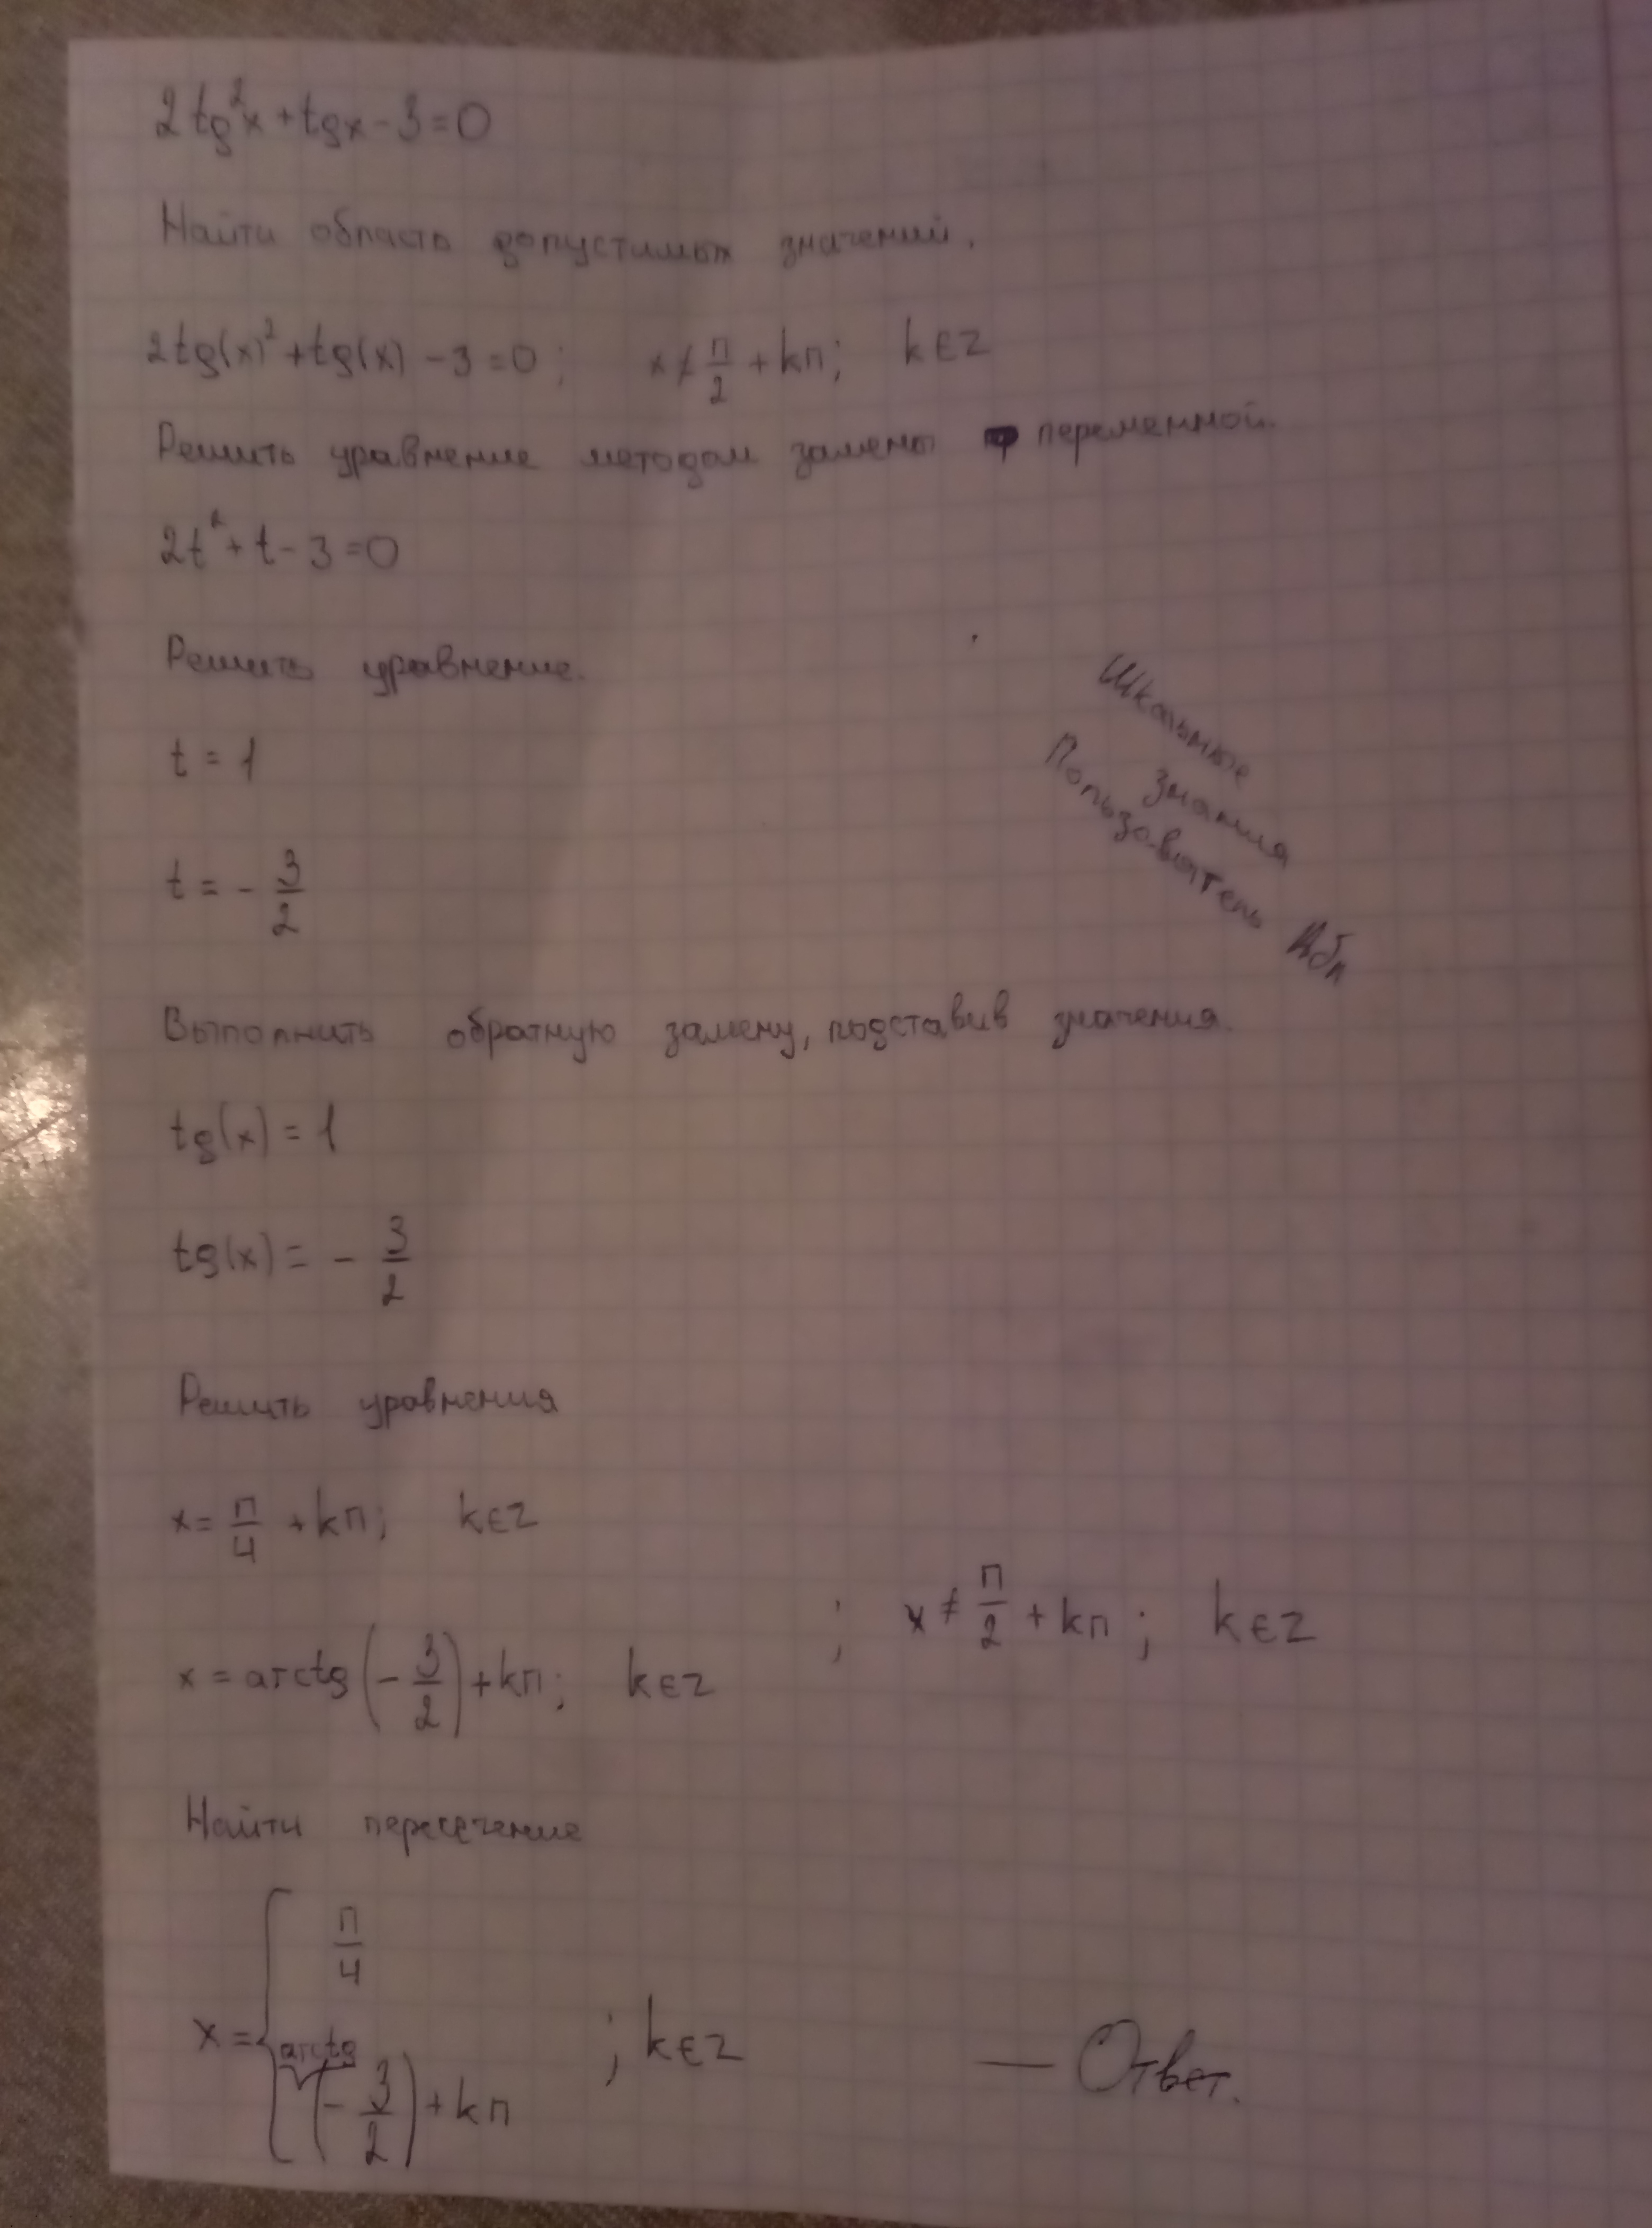 2tg²x + tgx - 3 = 0
Найти область допустимых значений.
2tg(x)² + tg(x) - 3 = 0; x ≠ п/2 + kп; k ∈ z
Решить уравнение методом замены переменной.
2t² + t - 3 = 0
Решить уравнение.
t = 1
t = - 3/2
Школьные
знания
Пользователь
Выполнить обратную замену, подставив значения.
tg(x) = 1
tg(x) = - 3/2
Решить уравнения
x = п/4 + kп; k ∈ z
x = arctg(- 3/2) + kп; k ∈ z ; x ≠ п/2 + kп; k ∈ z
Найти пересечение
x = { п/4
arctg (- 3/2) + kп ; k ∈ z — Ответ.